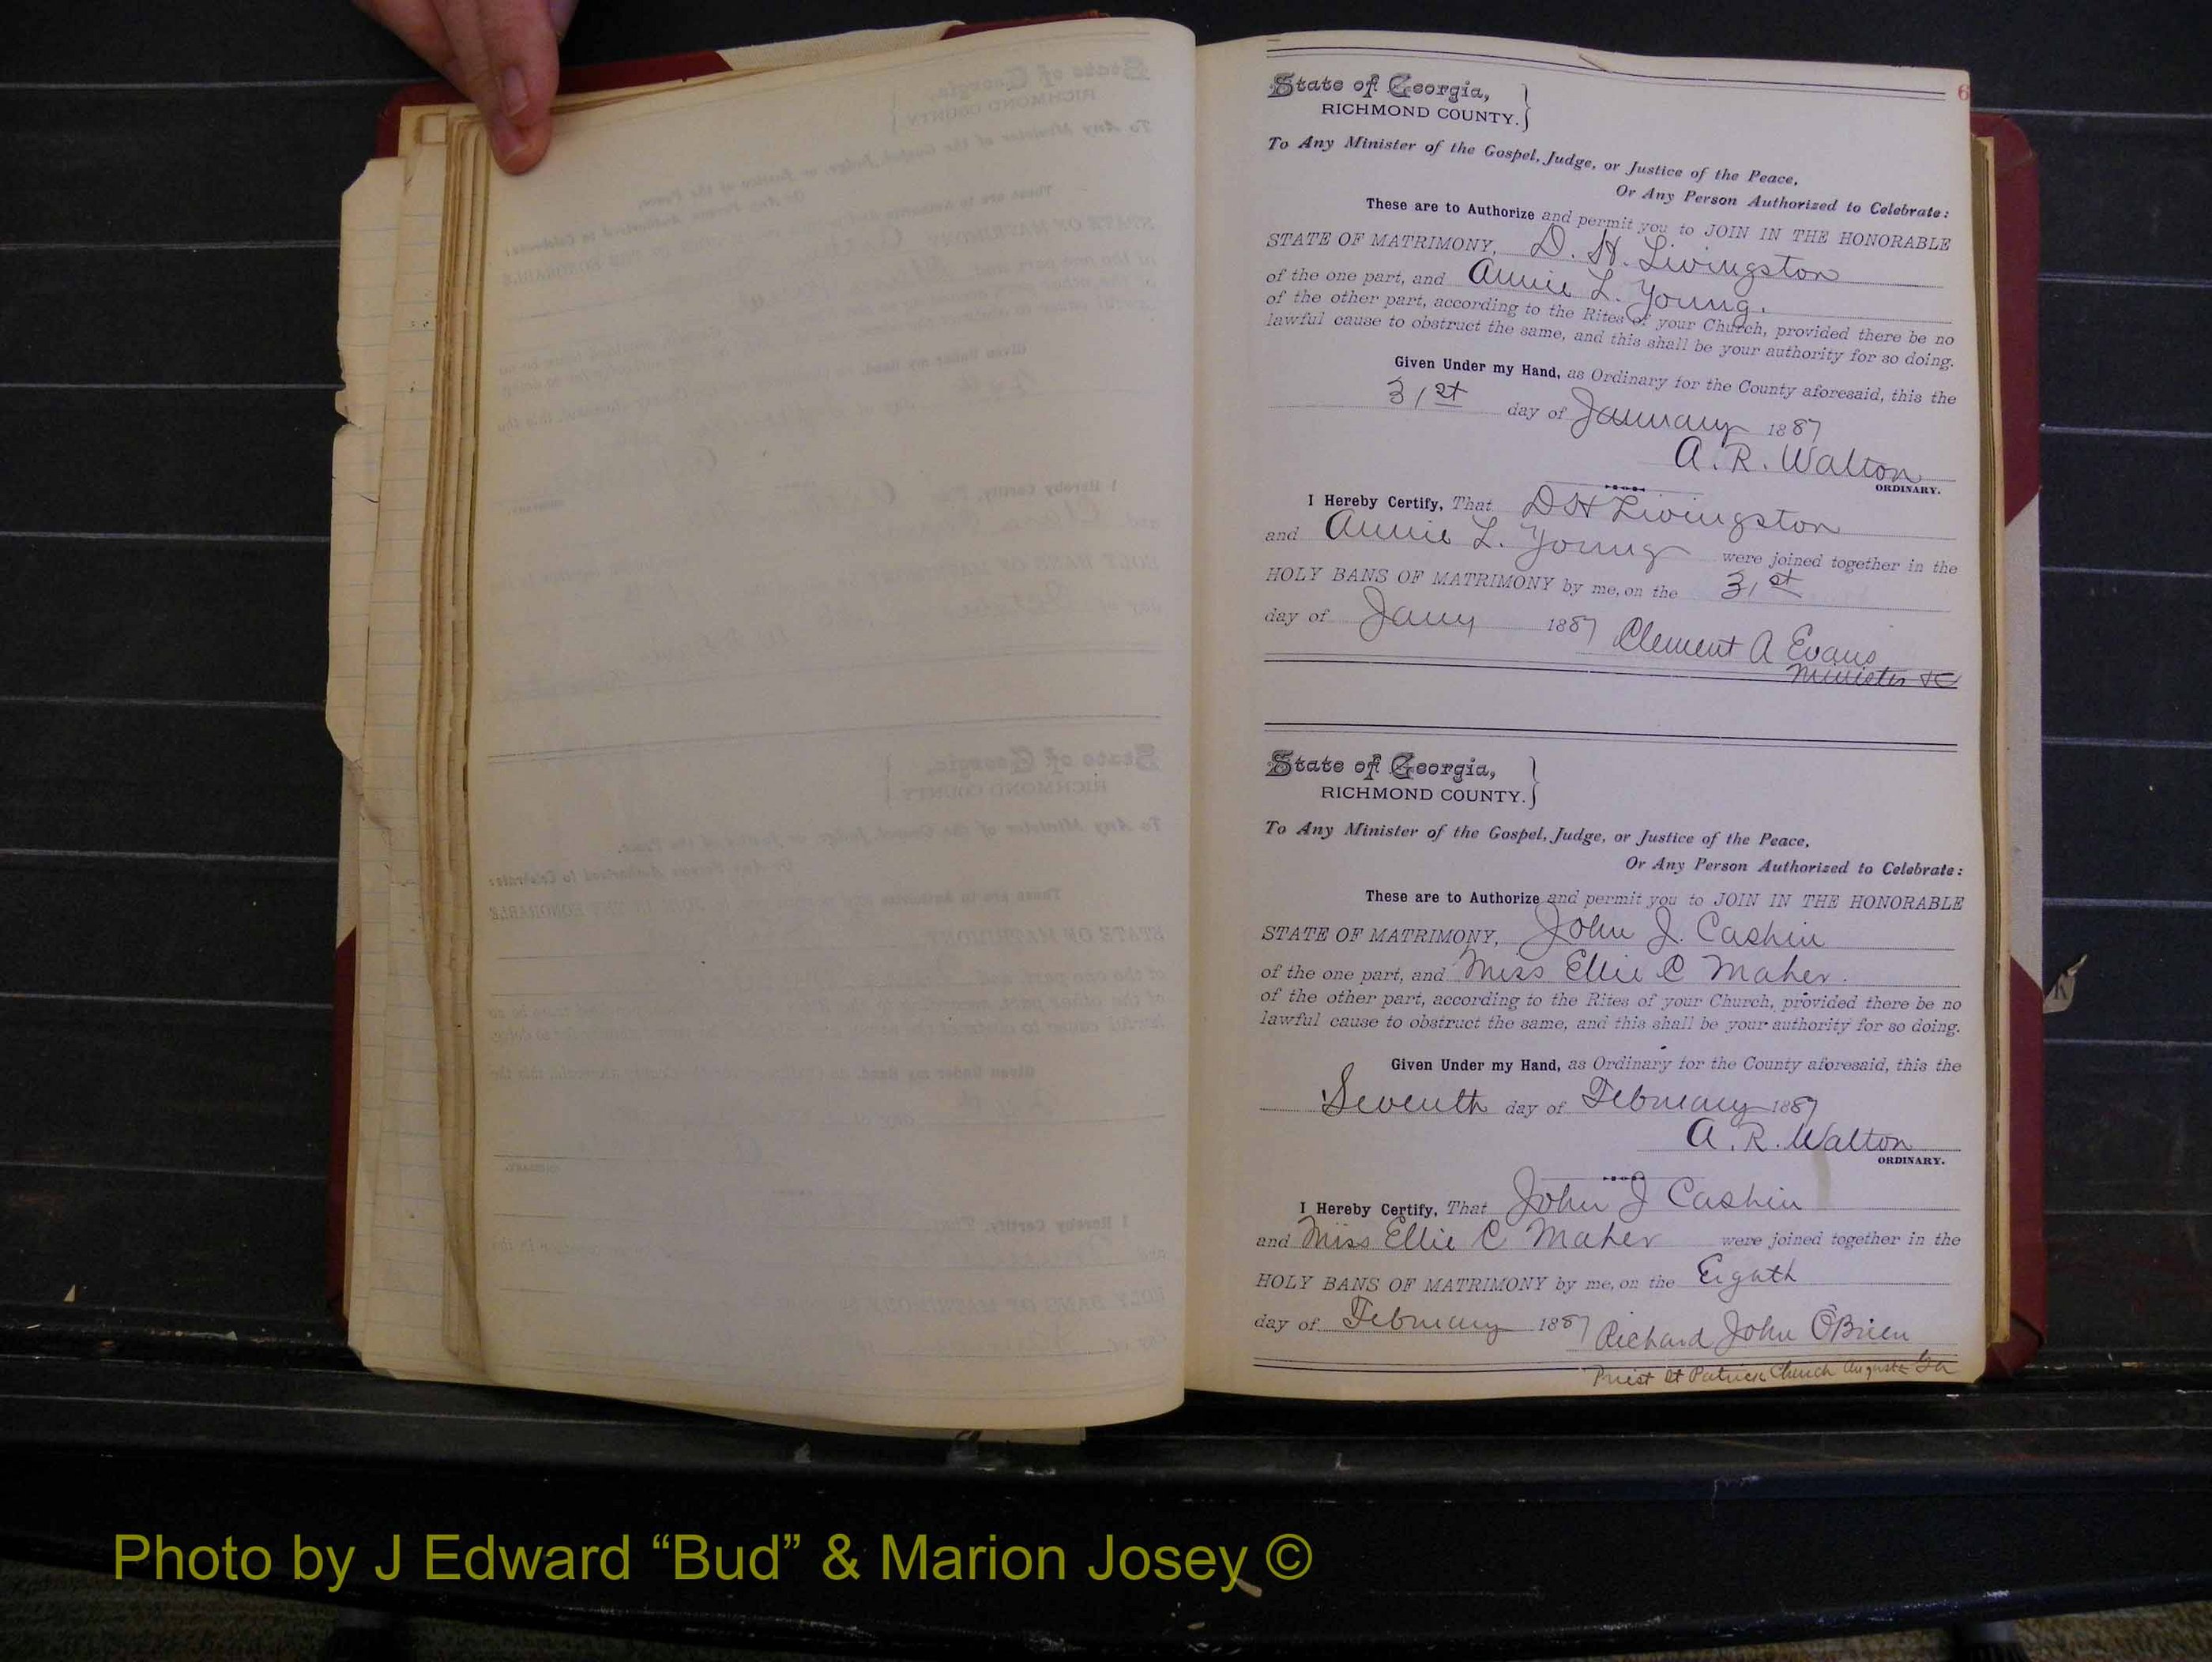 6
State of Georgia,
RICHMOND COUNTY.
To Any Minister of the Gospel, Judge, or Justice of the Peace,
Or Any Person Authorized to Celebrate:
These are to Authorize and permit you to JOIN IN THE HONORABLE
STATE OF MATRIMONY, D. H. Livingston
of the one part, and Annie L. Young.
of the other part, according to the Rites of your Church, provided there be no
lawful cause to obstruct the same, and this shall be your authority for so doing.
Given Under my Hand, as Ordinary for the County aforesaid, this the
31st day of January 1887
A. R. Walton
ORDINARY.
I Hereby Certify, That D H Livingston
and Annie L. Young were joined together in the
HOLY BANS OF MATRIMONY by me, on the 31st
day of Jany 1887 Clement A Evans
Minister
State of Georgia,
RICHMOND COUNTY.
To Any Minister of the Gospel, Judge, or Justice of the Peace,
Or Any Person Authorized to Celebrate:
These are to Authorize and permit you to JOIN IN THE HONORABLE
STATE OF MATRIMONY, John J. Cashin
of the one part, and Miss Ellie C Maher.
of the other part, according to the Rites of your Church, provided there be no
lawful cause to obstruct the same, and this shall be your authority for so doing.
Given Under my Hand, as Ordinary for the County aforesaid, this the
Seventh day of February 1887
A. R. Walton
ORDINARY.
I Hereby Certify, That John J Cashin
and Miss Ellie C Maher were joined together in the
HOLY BANS OF MATRIMONY by me, on the Eighth
day of February 1887 Richard John O'Brien
Priest St Patrick Church Augusta Ga
Photo by J Edward “Bud” & Marion Josey ©